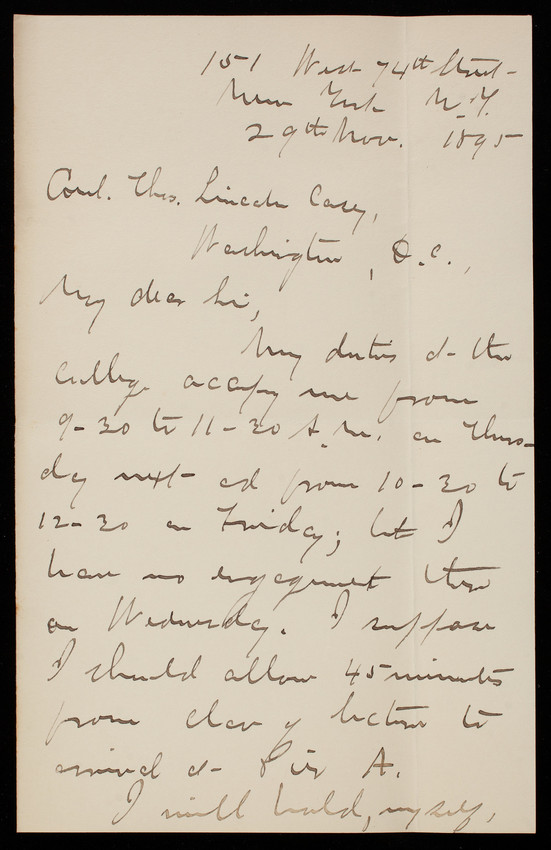 151 West 74th Street
New York N.Y.
29th Nov. 1895
Genl. Thos. Lincoln Casey,
Washington, D.C.,
My dear Sir,
My duties at the
College occupy me from
9-30 to 11-30 A.M. on Thurs-
day next ad from 10-30 to
12-30 on Friday; but I
have no engagement there
on Wednesday. I suppose
I should allow 45 minutes
from close of lecture to
arrival at Pier A.
I will hold, myself,